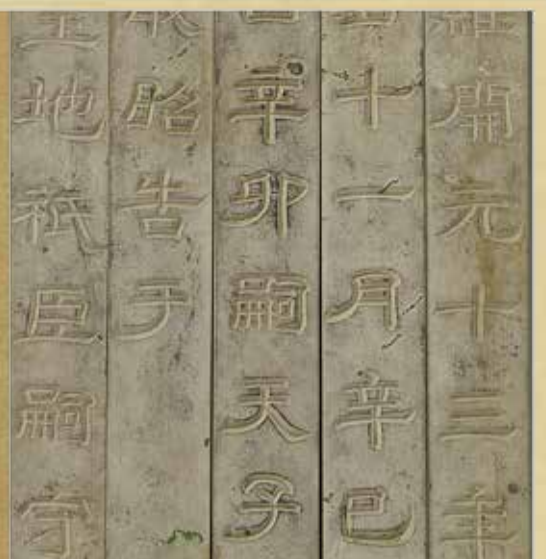 開元十三年
十一月辛巳
辛卯嗣天子
昭告于
地祇臣嗣守